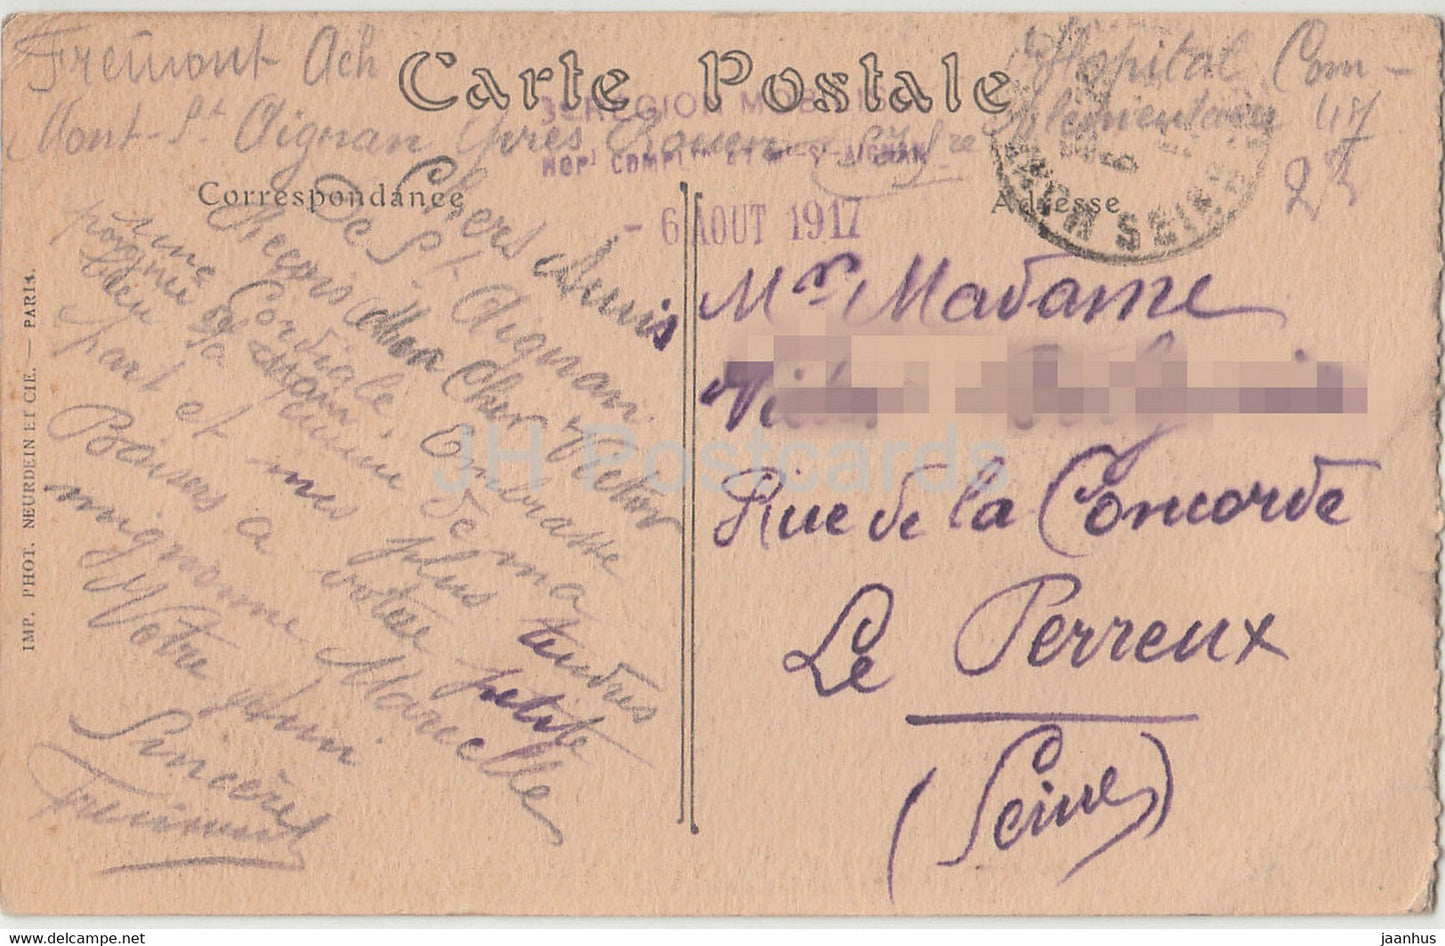 Fremont Ach
Hopital Com-
Carte Postale
Mont-St Aignan près Rouen
plémentaire 47
3e REGION MOB
HOPl COMPl ST AIGNAN
Correspondance
Adresse
- 6 AOUT 1917
SEINE
Chers Amis
De St Aignan
Reçois Mon Cher Victor
une Cordiale
poignée
bien de ma
part et mes plus tendres
Baisers a votre petite
mignonne Marcelle
Votre ami
Sincère
Fremont
Mr Madame
Rue de la Concorde
Le Perreux
(Seine)
IMP. PHOT. NEURDEIN ET CIE. — PARIS.
JH Postcards
www.delcampe.net
jaanhus